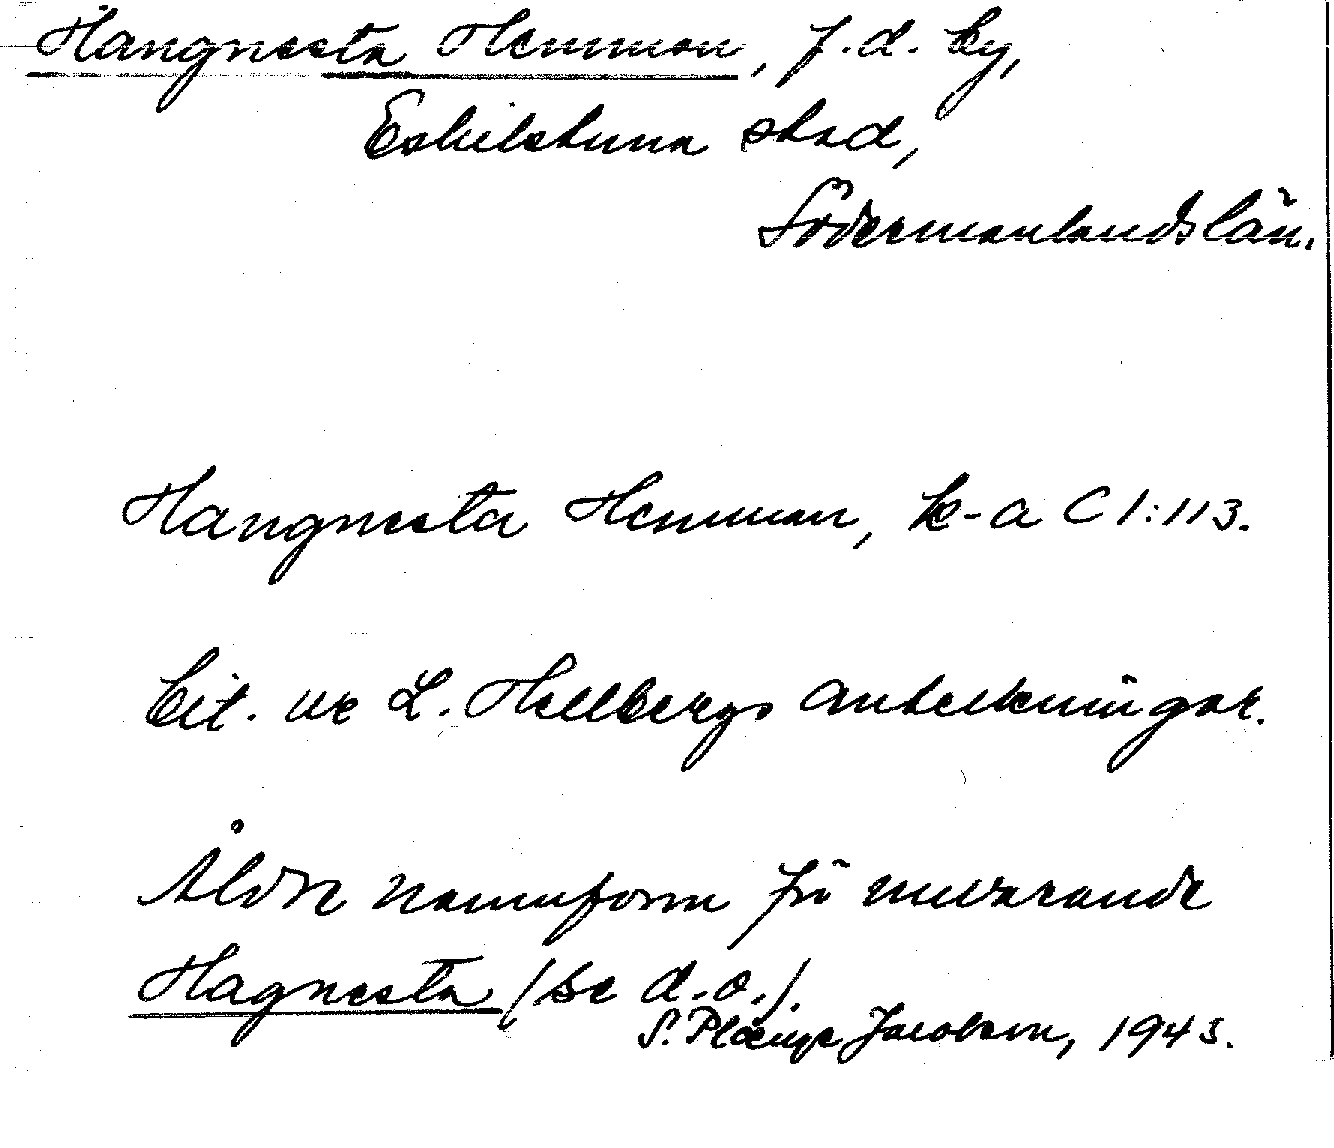 Hangnesta Hemman, f.d. by,
Eskilstuna stad,
Södermanlands län.
Hangnesta Hemman, k-a C 1:113.
Cit. ur L. Hellbergs anteckningar.
Äldre namnform för nuvarande
Hagnesta (se d.o.).
S. Jacobson, 1943.